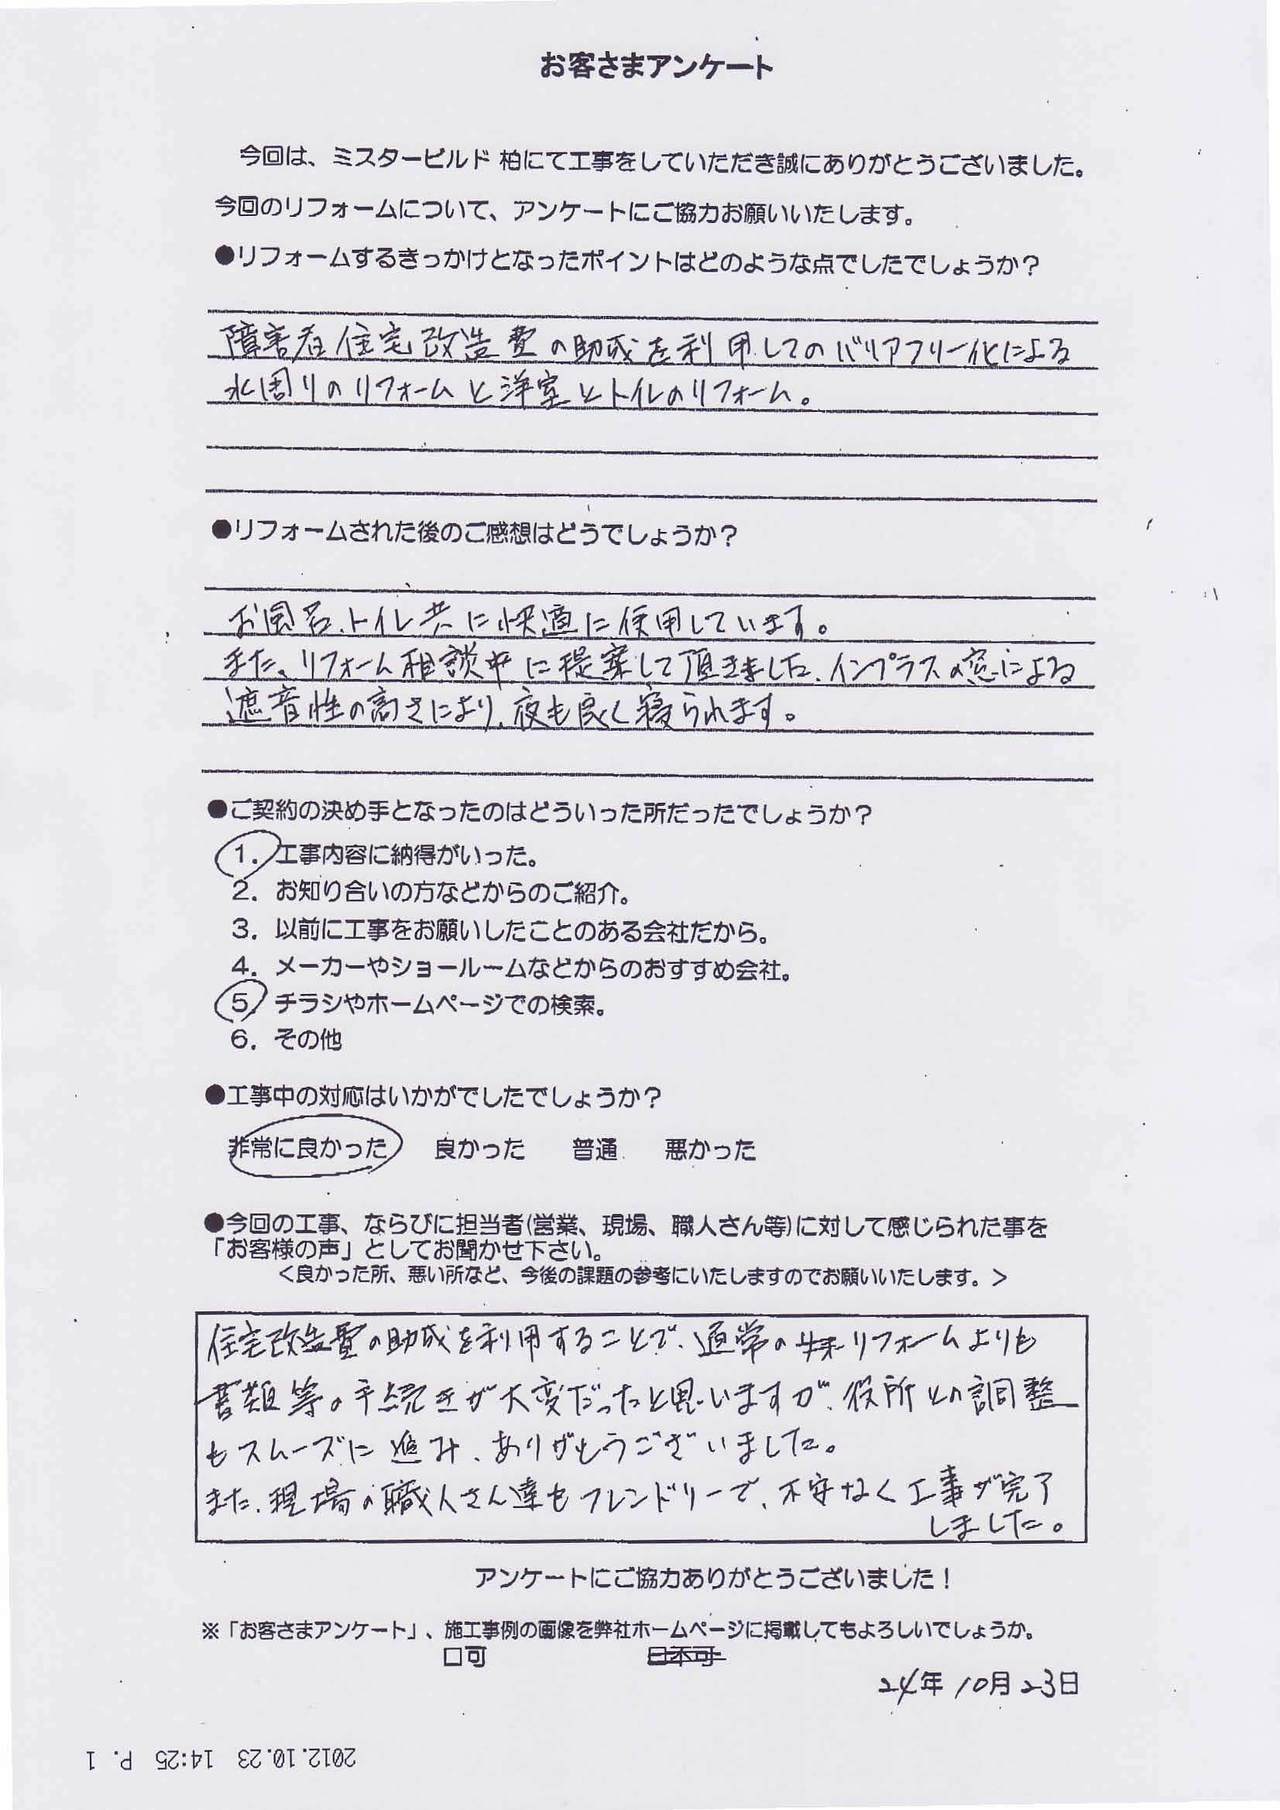 お客さまアンケート
今回は、ミスタービルド 柏にて工事をしていただき誠にありがとうございました。
今回のリフォームについて、アンケートにご協力お願いいたします。
●リフォームするきっかけとなったポイントはどのような点でしたでしょうか？
障害者住宅改造費の助成を利用してのバリアフリー化による
水周りのリフォームと洋室とトイレのリフォーム。
●リフォームされた後のご感想はどうでしょうか？
お風呂、トイレ共に快適に使用しています。
また、リフォーム相談中に提案して頂きました、インプラスの窓による
遮音性の高さにより、夜も良く寝られます。
●ご契約の決め手となったのはどういった所だったでしょうか？
1. 工事内容に納得がいった。
2. お知り合いの方などからのご紹介。
3. 以前に工事をお願いしたことのある会社だから。
4. メーカーやショールームなどからのおすすめ会社。
5. チラシやホームページでの検索。
6. その他
●工事中の対応はいかがでしたでしょうか？
非常に良かった 良かった 普通 悪かった
●今回の工事、ならびに担当者(営業、現場、職人さん等)に対して感じられた事を
「お客様の声」としてお聞かせ下さい。
＜良かった所、悪い所など、今後の課題の参考にいたしますのでお願いいたします。＞
住宅改造費の助成を利用することで、通常の リフォームよりも
書類等の手続きが大変だったと思いますが、役所との調整
もスムーズに進み、ありがとうございました。
また、現場の職人さん達もフレンドリーで、不安なく工事が完了
しました。
アンケートにご協力ありがとうございました！
※「お客さまアンケート」、施工事例の画像を弊社ホームページに掲載してもよろしいでしょうか。
□可 □不可
24年 10月 23日
2012.10.23 14:25 P. 1